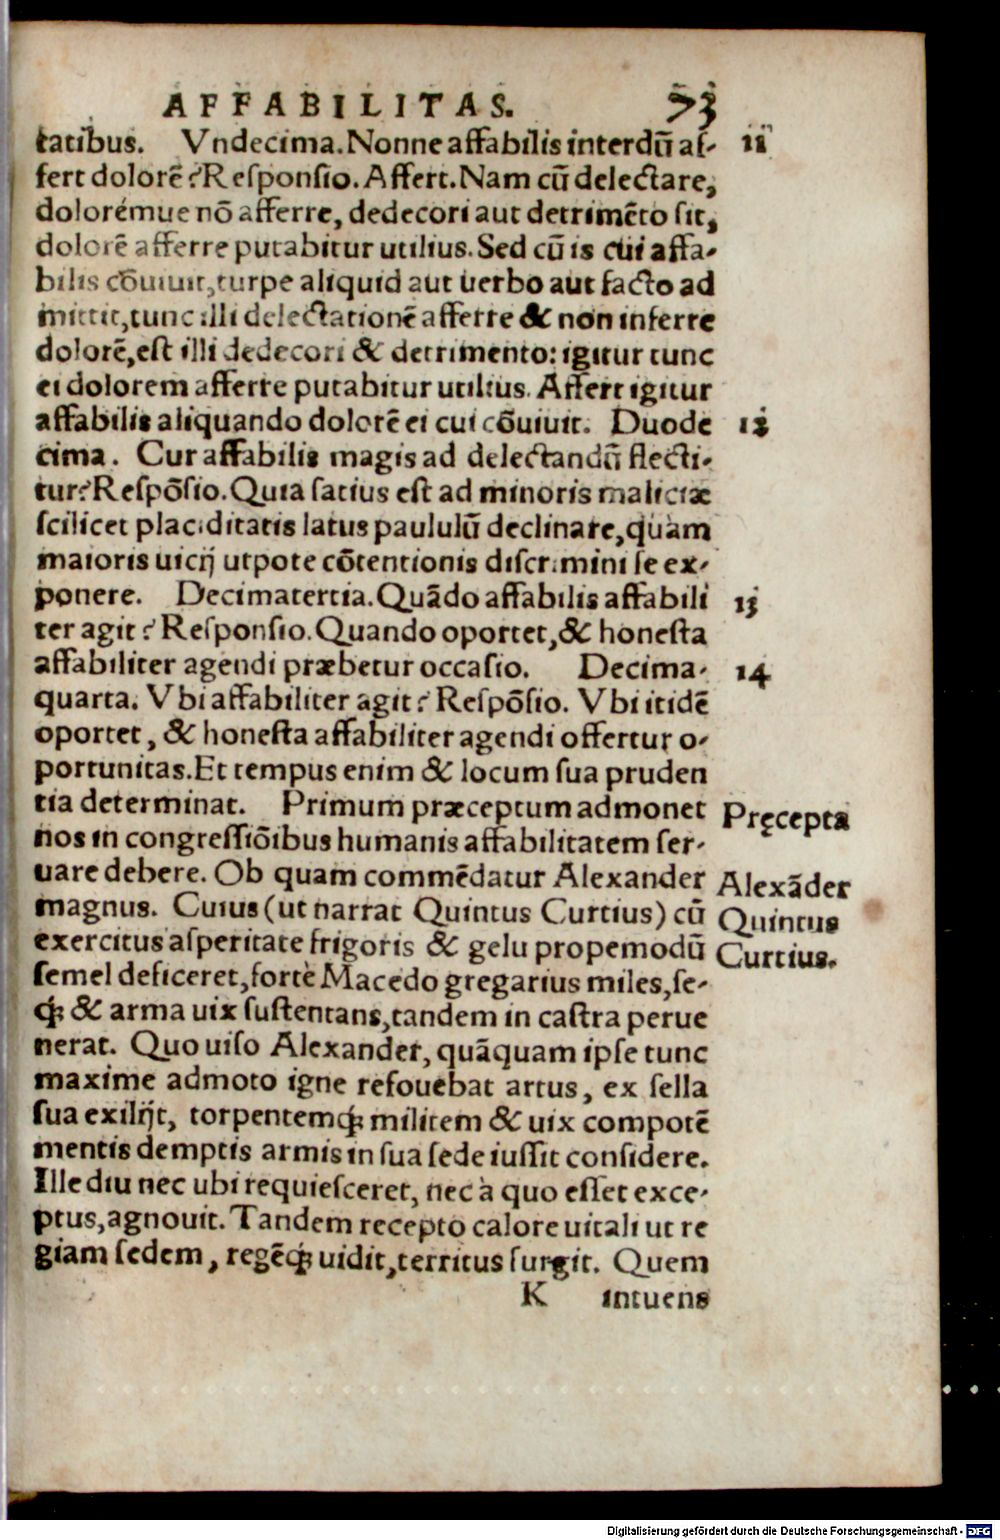 AFFABILITAS. 73
tatibus. Vndecima. Nonne affabilis interdũ af- 11
fert dolorẽ? Responsio. Affert. Nam cũ delectare,
dolorémue nõ afferre, dedecori aut detrimẽto sit,
dolorẽ afferre putabitur utilius. Sed cũ is cui affa-
bilis cõuiuit, turpe aliquid aut uerbo aut facto ad
mittit, tunc illi delectationẽ afferre & non inferre
dolorẽ, est illi dedecori & detrimento: igitur tunc
ei dolorem afferre putabitur utilius. Affert igitur
affabilis aliquando dolorẽ ei cui cõuiuit. Duode 12
cima. Cur affabilis magis ad delectandũ flecti-
tur? Respõsio. Quia satius est ad minoris maliciæ
scilicet placiditatis latus paululũ declinare, quàm
maioris uicij utpote cõtentionis discrimini se ex-
ponere. Decimatertia. Quãdo affabilis affabili 13
ter agit? Responsio. Quando oportet, & honesta
affabiliter agendi præbetur occasio. Decima- 14
quarta. Vbi affabiliter agit? Respõsio. Vbi itidẽ
oportet, & honesta affabiliter agendi offertur o-
portunitas. Et tempus enim & locum sua pruden
tia determinat. Primum præceptum admonet Pręcepta
nos in congressiõibus humanis affabilitatem ser-
uare debere. Ob quam commẽdatur Alexander Alexãder
magnus. Cuius (ut narrat Quintus Curtius) cũ Quintus
exercitus asperitate frigoris & gelu propemodũ Curtius.
semel deficeret, fortè Macedo gregarius miles, se-
q́ꝫ & arma uix sustentans, tandem in castra perue
nerat. Quo uiso Alexander, quãquam ipse tunc
maxime admoto igne refouebat artus, ex sella
sua exilijt, torpentemq́ꝫ militem & uix compotẽ
mentis demptis armis in sua sede iussit considere.
Ille diu nec ubi requiesceret, nec à quo esset exce-
ptus, agnouit. Tandem recepto calore uitali ut re
giam sedem, regẽq́ꝫ uidit, territus surgit. Quem
K intuens
Digitalisierung gefördert durch die Deutsche Forschungsgemeinschaft - DFG